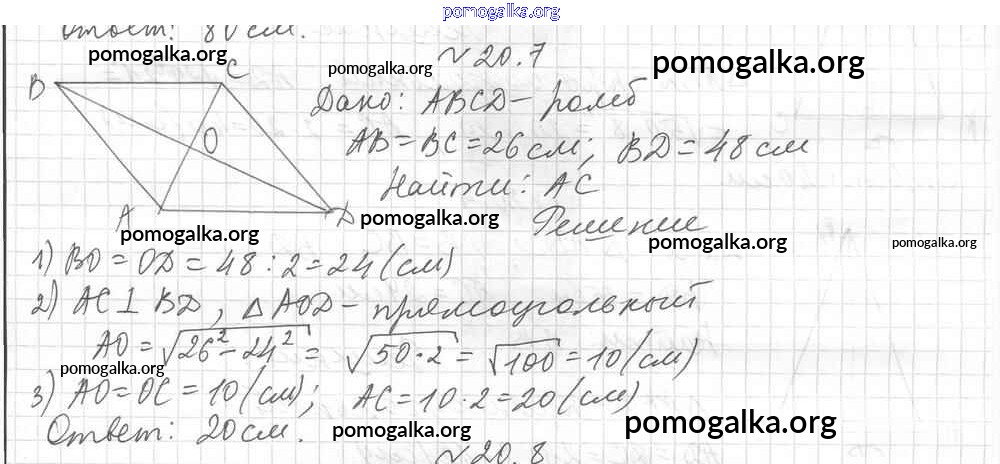 pomogalka.org
Ответ: 80 см.
pomogalka.org
№ 20.7
pomogalka.org
pomogalka.org
B
C
Дано: ABCD – ромб
O
AB = BC = 26 см; BD = 48 см
Найти: AC
A
D
pomogalka.org
Решение
pomogalka.org
pomogalka.org
pomogalka.org
1) BO = OD = 48 : 2 = 24 (см)
2) AC ⊥ BD, △ AOD – прямоугольный
AO = √26² – 24² = √50 · 2 = √100 = 10 (см)
pomogalka.org
3) AO = OC = 10 (см); AC = 10 · 2 = 20 (см)
Ответ: 20 см.
pomogalka.org
pomogalka.org
№ 20.8